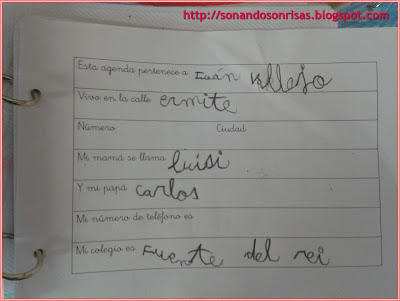 http://sonandosonrisas.blogspot.com
Esta agenda pertenece a Iván Vallejo
Vivo en la calle ermite
Número Ciudad
Mi mamá se llama luisi
Y mi papá carlos
Mi número de teléfono es
Mi colegio es Fuente del rei